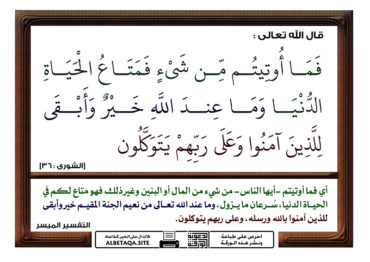 قال الله تعالى :
فَمَا أُوتِيتُم مِّن شَيْءٍ فَمَتَاعُ الْحَيَاةِ
الدُّنْيَا وَمَا عِندَ اللَّهِ خَيْرٌ وَأَبْقَى
لِلَّذِينَ آمَنُوا وَعَلَى رَبِّهِمْ يَتَوَكَّلُون
[الشورى : ٣٦]
أي فما أوتيتم -أيها الناس- من شيء من المال أو البنين وغير ذلك فهو متاع لكم في
الحياة الدنيا، سُرعان ما يزول، وما عند الله تعالى من نعيم الجنة المقيم خير وأبقى
للذين آمنوا بالله ورسله، وعلى ربهم يتوكلون.
التفسير الميسر
احرص على طباعة
ونشر هذه الورقة
ALBETAQA.SITE